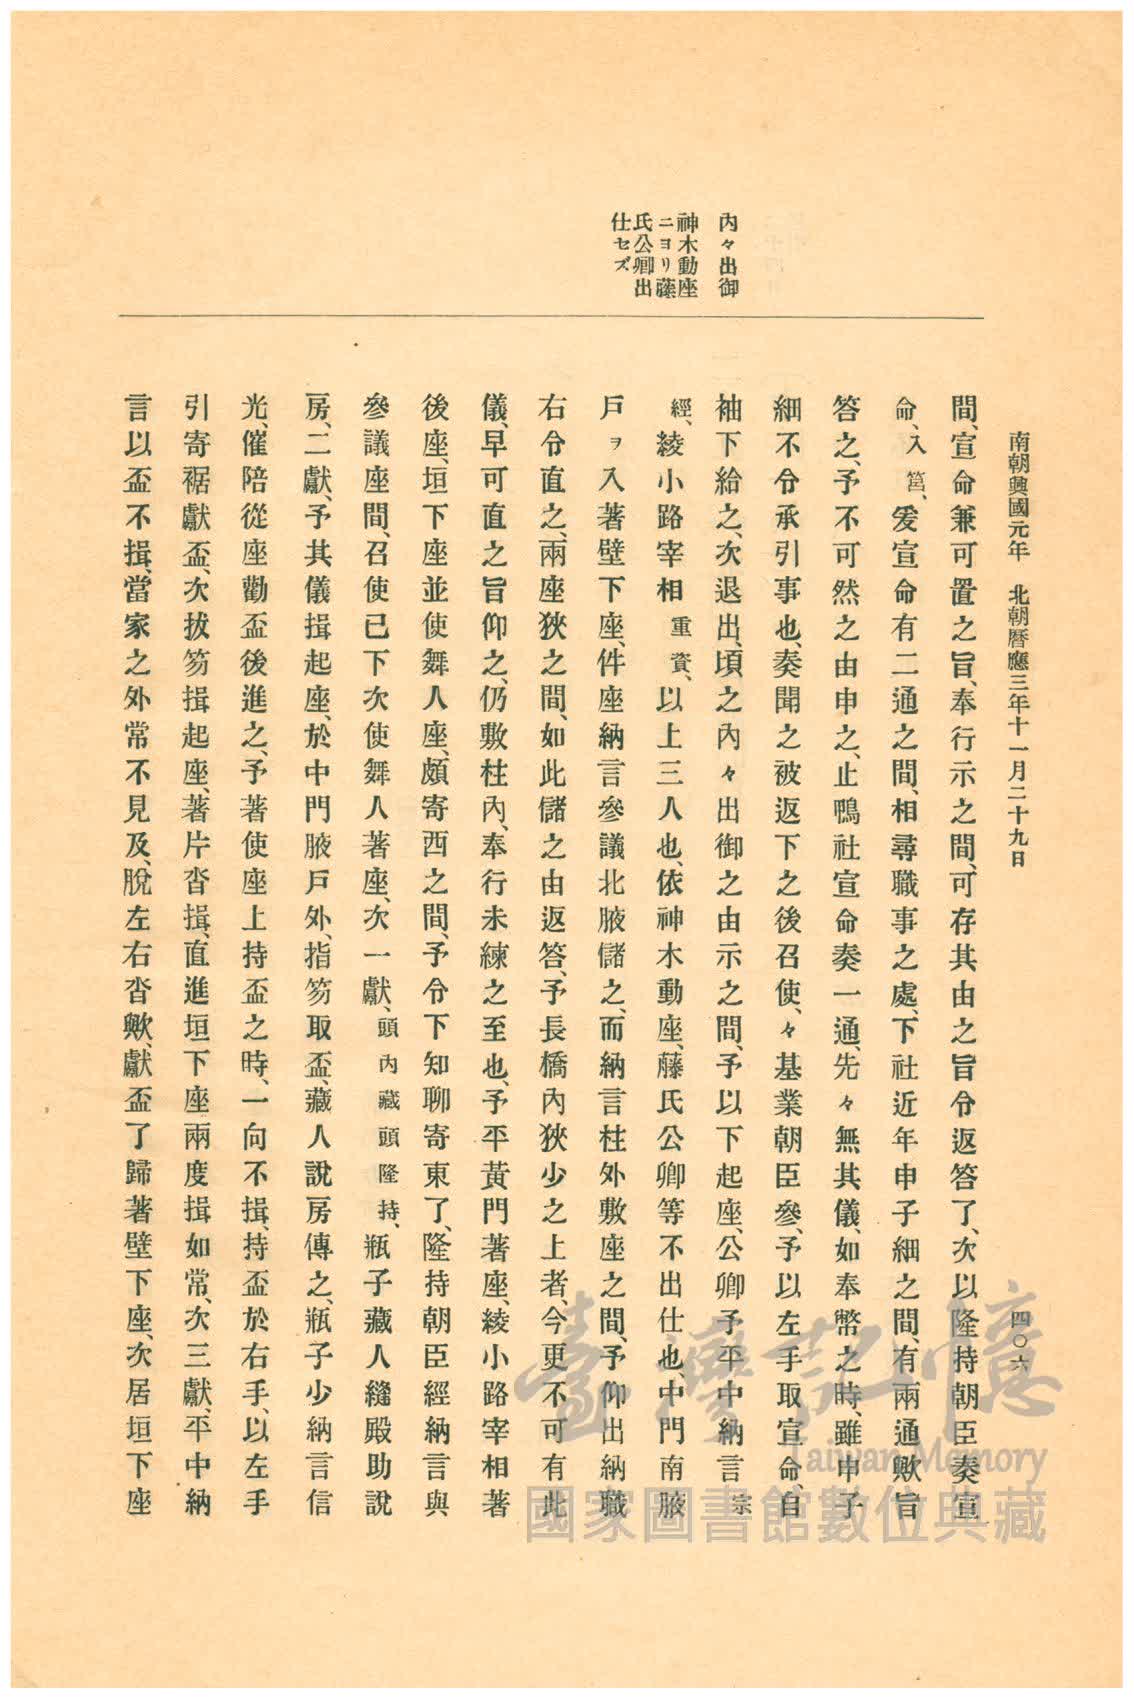 南朝興國元年　北朝曆應三年十一月二十九日
四〇六
內々出御
神木動座
ニヨリ藤
氏公卿出
仕セズ
間、宣命兼可置之旨、奉行示之間、可存其由之旨令返答了、次以隆持朝臣奏宣
命、入筥、爰宣命有二通之間、相尋職事之處、下社近年申子細之間、有兩通歟旨
答之、予不可然之由申之、止鴨社宣命奏一通、先々無其儀、如奉幣之時、雖申子
細不令承引事也、奏聞之被返下之後召使、々基業朝臣參、予以左手取宣命、自
袖下給之、次退出、頃之內々出御之由示之間、予以下起座、公卿予平中納言宗
經、綾小路宰相重資、以上三人也、依神木動座、藤氏公卿等不出仕也、中門南腋
戶ヲ入著壁下座、件座納言參議北腋儲之、而納言柱外敷座之間、予仰出納職
右令直之、兩座狹之間、如此儲之由返答、予長橋內狹少之上者、今更不可有此
儀、早可直之旨仰之、仍敷柱內、奉行未練之至也、予平黃門著座、綾小路宰相著
後座、垣下座並使舞人座、頗寄西之間、予令下知聊寄東了、隆持朝臣經納言與
參議座間、召使已下次使舞人著座、次一獻、頭內藏頭隆持、瓶子藏人縫殿助說
房、二獻、予其儀揖起座、於中門腋戶外、指笏取盃、藏人說房傳之、瓶子少納言信
光、催陪從座勸盃後進之、予著使座上持盃之時、一向不揖、持盃於右手、以左手
引寄裾獻盃、次拔笏揖起座、著片沓揖、直進垣下座兩度揖如常、次三獻、平中納
言以盃不揖、當家之外常不見及、脫左右沓歟、獻盃了歸著壁下座、次居垣下座
臺灣記憶
Taiwan Memory
國家圖書館數位典藏